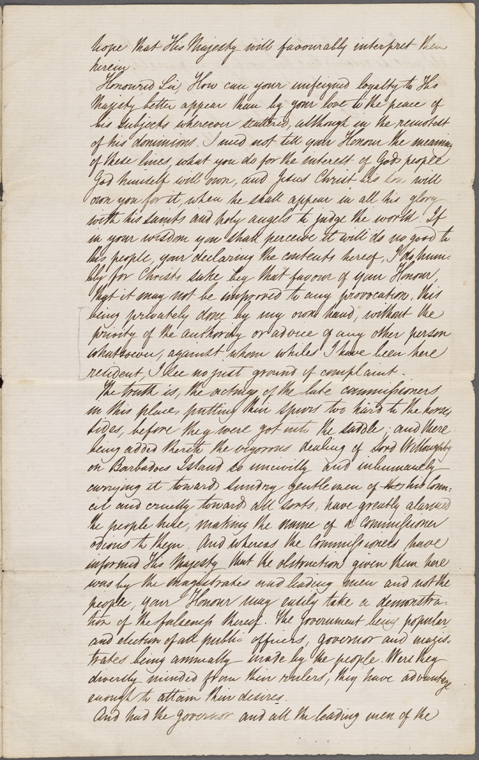 hope that His Majesty will favourably interpret them
herein.
Honoured Sir, How can your unfeigned loyalty to His
Majesty better appear than by your love to the peace of
his subjects wherever scattered, although in the remotest
of his dominions. I need not tell your Honour the meaning
of these lines, what you do for the interest of God's people
God himself will own, and Jesus Christ his Son will
own you for it, when he shall appear in all his glory
with his saints and holy angels to judge the world. If
in your wisdom you shall perceive it will do no good to
his people, your declaring the contents hereof, I do hum-
bly for Christs sake beg that favour of your Honour,
that it may not be improved to any provocation, this
being privately done by my own hand, without the
privity of the authority or advice of any other person
whatsoever, against whom whiles I have been here
resident, I see no just ground of complaint.
The truth is, the actings of the late commissioners
in this place, putting their spurs too hard to the horses
sides, before they were got into the saddle; and there
being added therto the rigorous dealing of Lord Willoughby
on Barbadoes Island so uncivilly and inhumanely
carrying it toward sundry gentlemen of his coun-
cil and cruelly toward all sorts, have greatly alarmed
the people here, making the name of a commissioner
odious to them. And whereas the Commissioners have
informed His Majesty that the obstruction given them here
was by the magistrates and leading men and not the
people, your Honour may easily take a demonstra-
tion of the falseness thereof. The government being popular
and election of all public officers, governor and magis-
trates being annually made by the people. Were they
diversly minded from their rulers, they have advantage
enough to attain their desires.
And had the governor and all the leading men of the